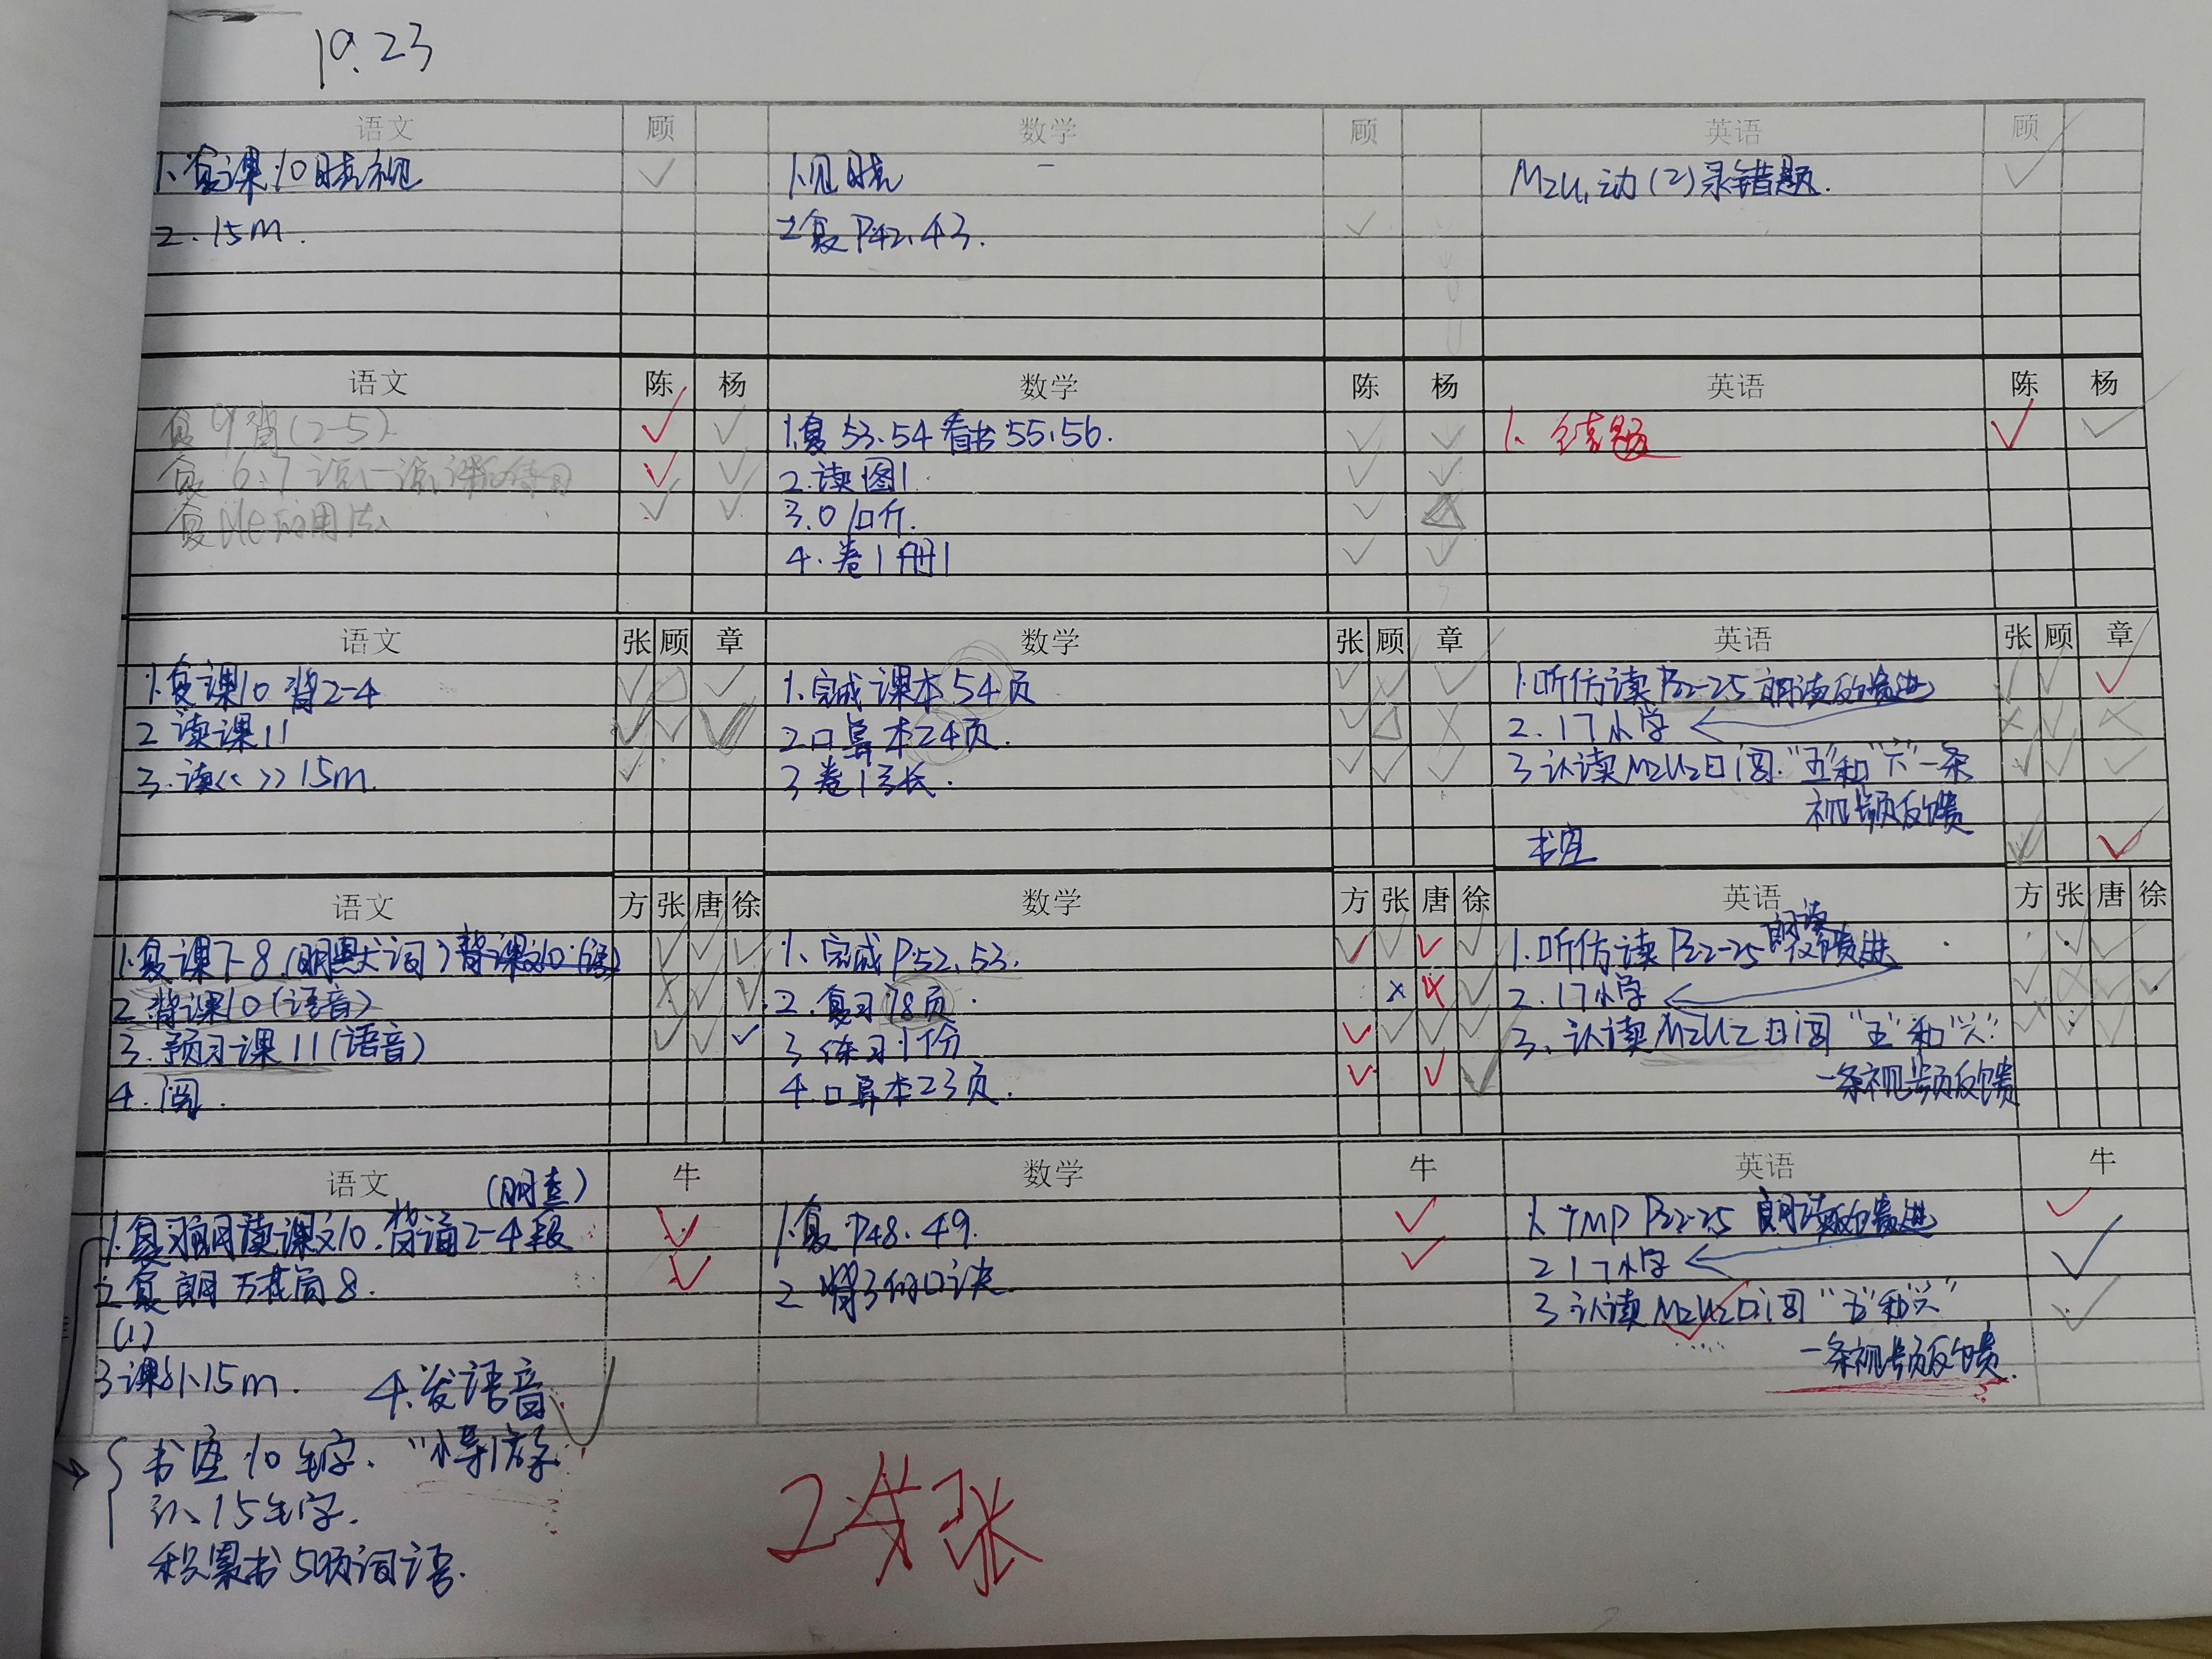 10.23
语文 顾 数学 顾 英语 顾
1.复课10 1.见 M2U1动(2)录错题.
2.15m. 2复P42.43.
语文 陈 杨 数学 陈 杨 英语 陈 杨
复 背(2-5) 1.复53.54看书55.56. 1.
复6.7说一说 2.读图1
复 的用法 3.口
4.卷1册1
语文 张 顾 章 数学 张 顾 章 英语 张 顾 章
1.复课10 背2-4 1.完成课本54页 1.听仿读P22-25 朗读反馈进
2读课11 2口算本24页. 2.17小学
3.读《 》15m. 3卷1 3认读M2U2日阅"五"和"六"一条
视频反馈
语文 方 张 唐 徐 数学 方 张 唐 徐 英语 方 张 唐 徐
朗读
1.复课7-8.(明默词)背课文10 1.完成P52.53. 1.听仿读P22-25反馈进
2.背课10(语音) 2.复习78页. 2.17小学
3.预习课11(语音) 3练习1份 3.认读M2U2日阅"五"和"六"
4.阅. 4.口算本23页. 一条视频反馈
语文 牛 数学 牛 英语 牛
(明查)
1.复习朗读课文10.背诵2-4段 1.复P48.49. 1. P22-25 朗读反馈进
2复朗万花筒8. 2背3的口诀 2 17小学
(1) 3认读M2U2日阅"五"和"六"
3课外15m. 4.发语音 一条视频反馈.
书 10生字. "小导游
认15生字.
积累书5项词语.
2 张